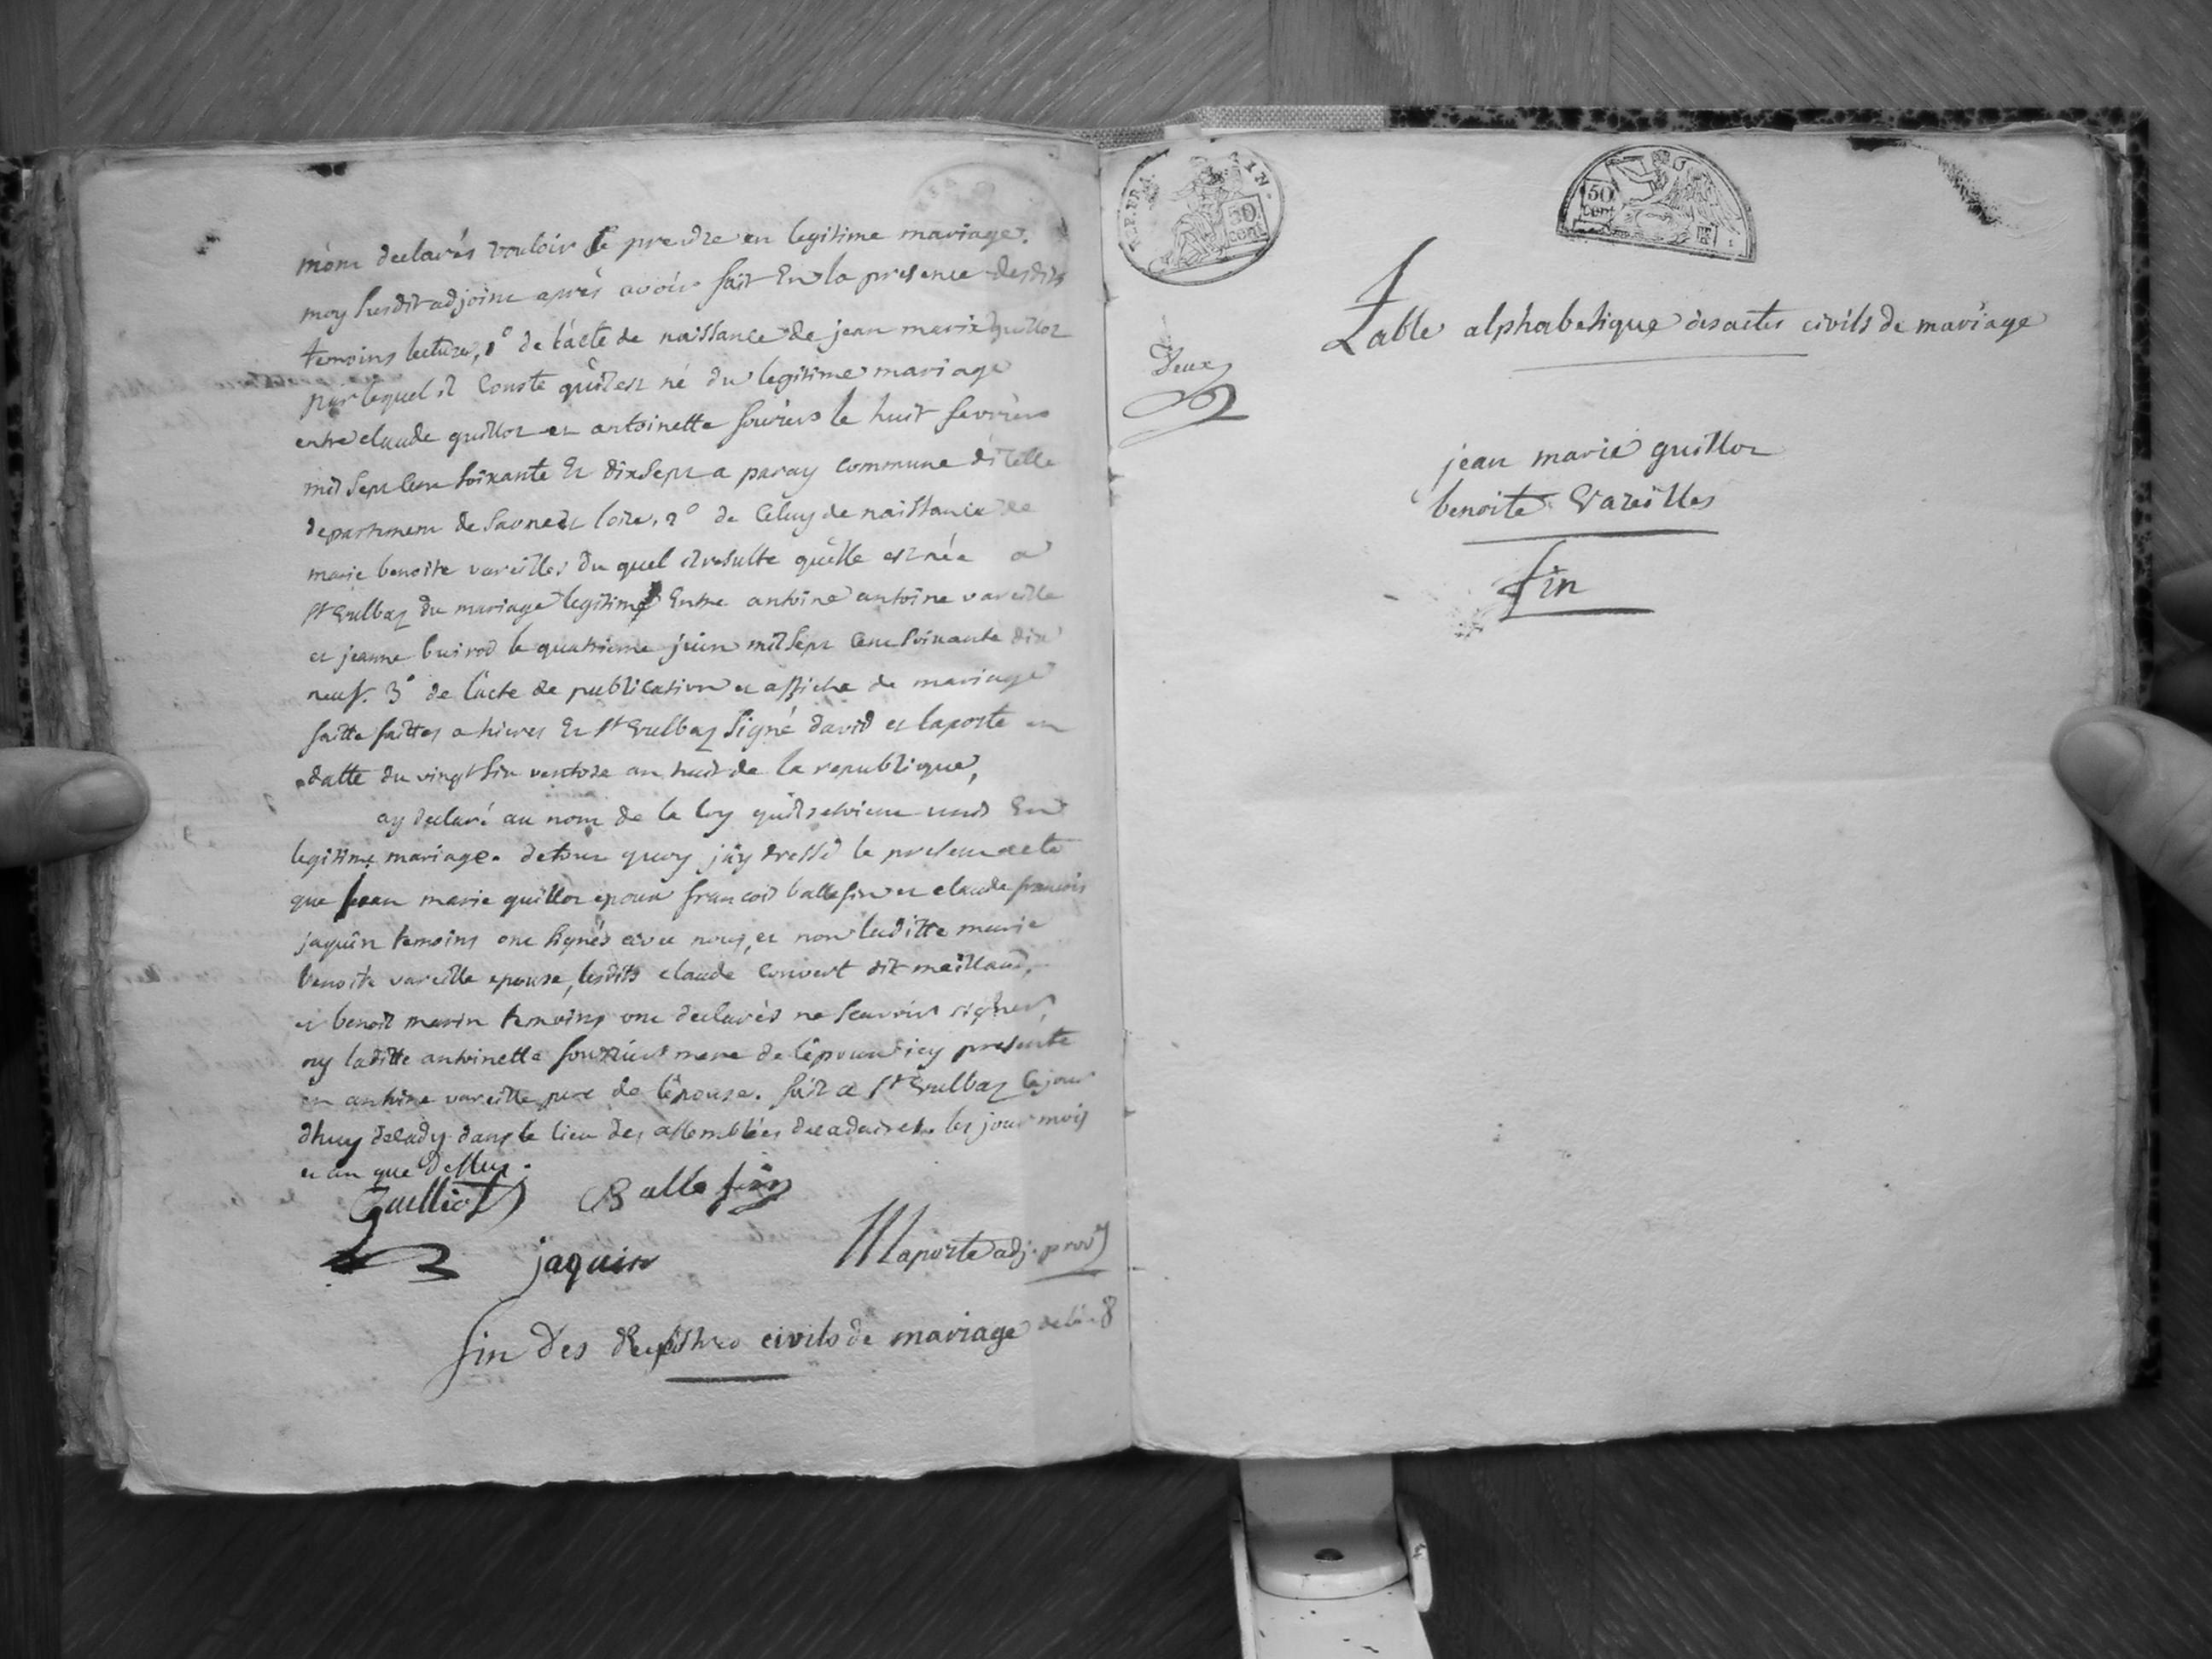 m'ont declarés vouloir se prendre en legitime mariage.
moy susdit adjoint après avoir fait En la presence desdits
temoins lecture, 1° de l'acte de naissance de jean marie guillot
par lequel il Conste qu'il est né du legitime mariage
entre claude guillot et antoinette le huit fevrier
mil sept cent soixante Et dix sept a paray commune d'icelle
departement de Saone et loire. 2° de Celuy de naissance de
marie benoite vareilles du quel il resulte qu'elle est née a
St Eulbas du mariage legitime Entre antoine antoine vareille
et jeanne buirod le quatrieme juin mil sept cent soixante dix
neuf. 3° de l'acte de publication et affiche de mariage
faitte faittes a hieres Et St Eulbas signé david et laporte en
datte du vingt six ventose an huit de la republique,
ay declaré au nom de la loy qu'ils etoient unis En
legitime mariage. de tout quoy j'ay dressé le present acte
que jean marie guillot epoux francois ballefin et claude francois
jaquin temoins ont signés avec nous, et non laditte marie
benoite vareille epouse, lesdits claude Convert dit meilland,
et benoit marin temoins ont declarés ne scavoir signer,
ny laditte antoinette mere de l'epoux icy presente
antoine vareille pere de l'epouse. fait a St Eulbas le jour
dhuy decady dans le lieu des assemblées decadaires. les jour mois
et an que dessus.
Guilliot Ballefin
jaquin Mlaporte adj. prov
fin Des Registres civils de mariage de l'an 8
R.F. IN.
50
cent
50
cent
Deux
Table alphabetique des actes civils de mariage
jean marie guillot
benoite Vareilles
fin